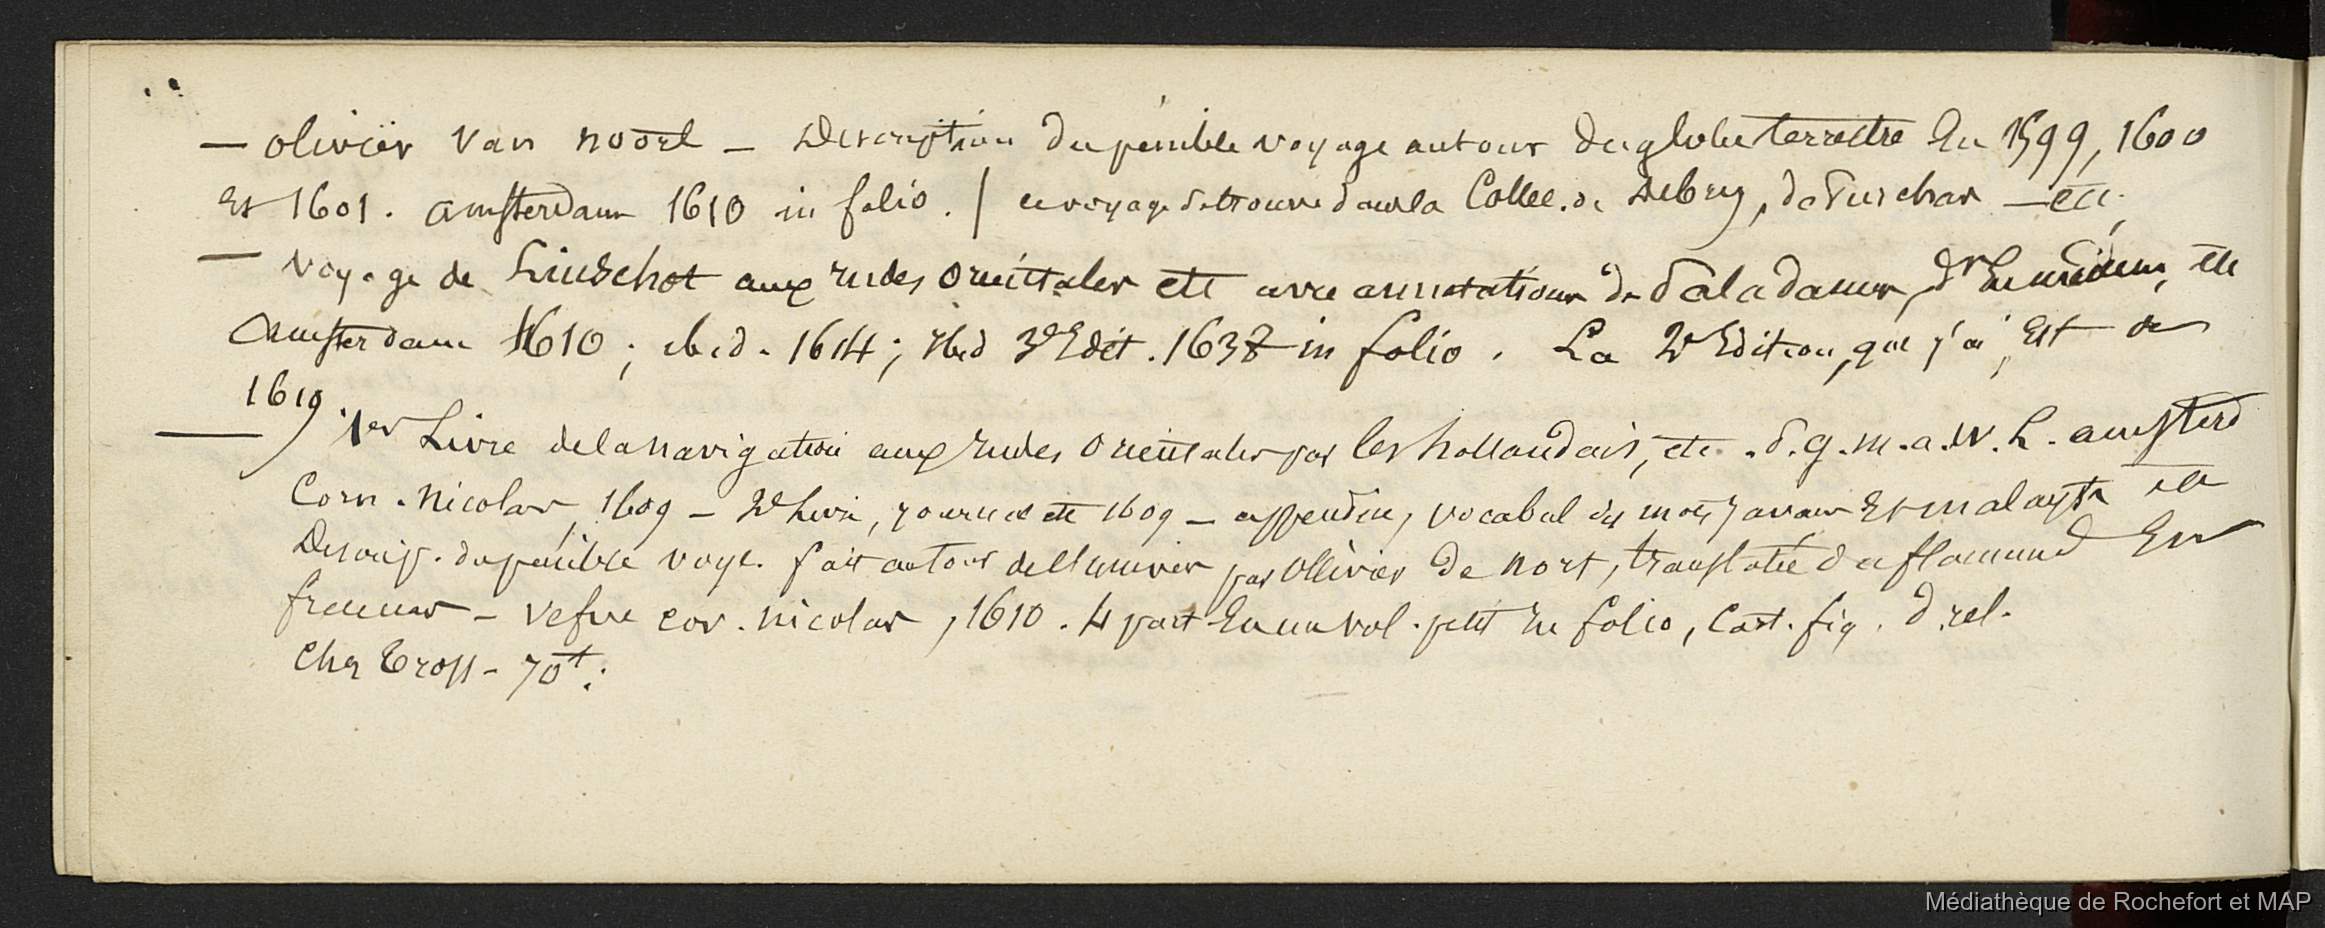 — olivier Van noort — Description du pénible voyage autour du globe terrestre En 1599, 1600
Et 1601. amsterdam 1610 in folio. / ce voyage se trouve dans la Collec. de Debry, de Purchas — etc.
— Voyage de Linschot aux Indes orientales etc avec annotations de Paladanus, dr En médecin, etc
Amsterdam 1610; ibid. 1614; ibid 3e Edit. 1638 in folio. La 2e Edition, que j'ai, Est de
1619
— 1er Livre de la navigation aux Indes orientales par les hollandais, etc. P. g. m. a. W. L. amsterd
Corn. Nicolas, 1609 — 2e Livre, journal etc 1609 — appendice, vocabul des mots Javans Et malayts etc
Descrip. du pénible voye. fait autour de l'univers par Ollivier de Nort, translatée du flamand En
français — Vefve cor. Nicolas, 1610. 4 part En un vol. petit In folio, Cart. fig. d. rel.
Chez Tross — 70f.